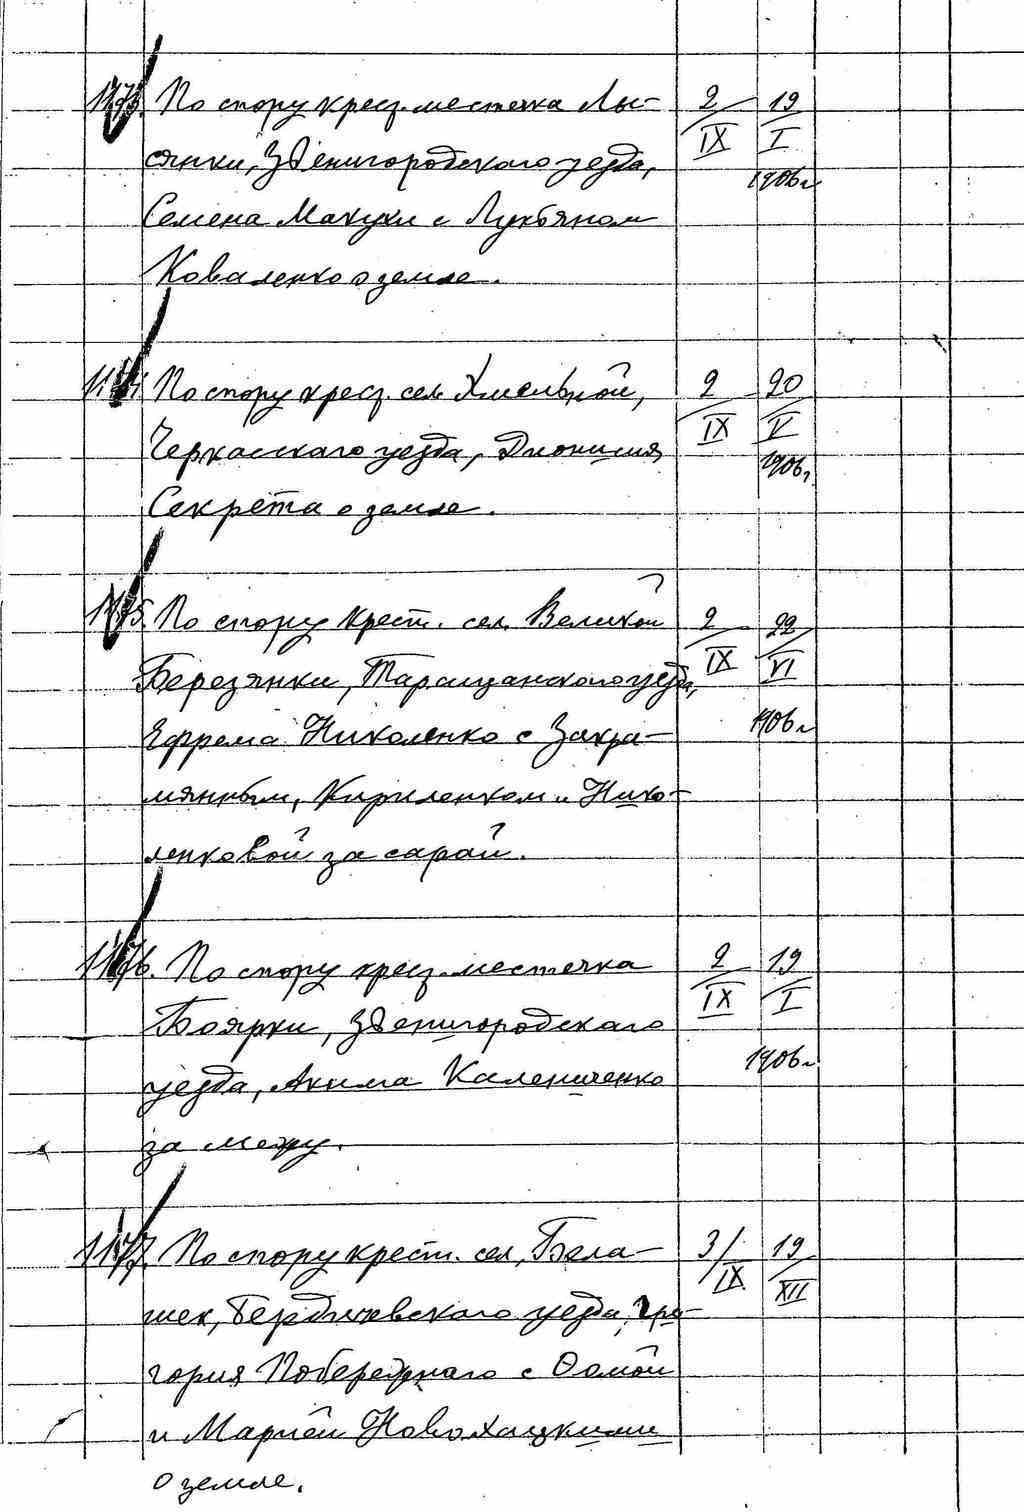 1173. По спору крест. местечка Лы- 2/IX 19/I
сянки, Звенигородского уезда, 1906 г.
Семена Макухи с Лукьяном
Коваленко о земле.
1174. По спору крест. сел. Хмельной, 2/IX 20/V
Черкасского уезда, Дионисия 1906 г.
Секрета о земле.
1175. По спору крест. сел. Великой 2/IX 22/VI
Березянки, Таращанского уезда,
Ефрема Николенко с Закра- 1906 г.
мянным, Кириленком и Нико-
ленковой за сарай.
1176. По спору крест. местечка 2/IX 19/I
Боярки, Звенигородского
уезда, Акима Калениченко 1906 г.
за межу.
1177. По спору крест. сел. Бела- 3/IX 19/XII
шек, Бердичевского уезда, Гри-
гория Побережного с Фомой
и Марией Новохацкими
о земле.